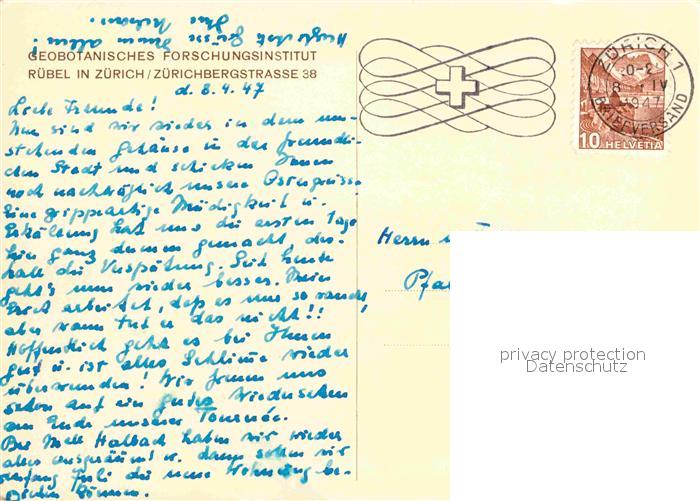 Herzlichst Grüsse Ihnen allen!
Ihre
GEOBOTANISCHES FORSCHUNGSINSTITUT
RÜBEL IN ZÜRICH / ZÜRICHBERGSTRASSE 38
d. 8.4.47
Liebe Freunde!
Nun sind wir wieder in dem um-
stehenden Gehäuse in der freundli-
chen Stadt und schicken Ihnen
noch nachträglich unsere Ostergrüsse
Eine grippeartige Müdigkeit u.
Erkältung hat uns die ersten Tage
hier ganz dumm gemacht, des-
halb die Verspätung. Seit heute
geht's uns wieder besser. Mein
arbeitet, daß es nur so raucht,
aber wann tut er das nicht!!
Hoffentlich geht es bei Ihnen
gut u. ist alles Schlimme wieder
überwunden! Wir freuen uns
schon auf ein gutes Wiedersehen
am Ende unserer Tournée.
Bei Halbach haben wir wieder
alles ausgeräumt u. dann sollen wir
anfang Juli die neue Wohnung be-
ziehen können.
ZÜRICH 1
BRIEFVERSAND
10 HELVETIA
Herrn u.
Pfa
privacy protection
Datenschutz